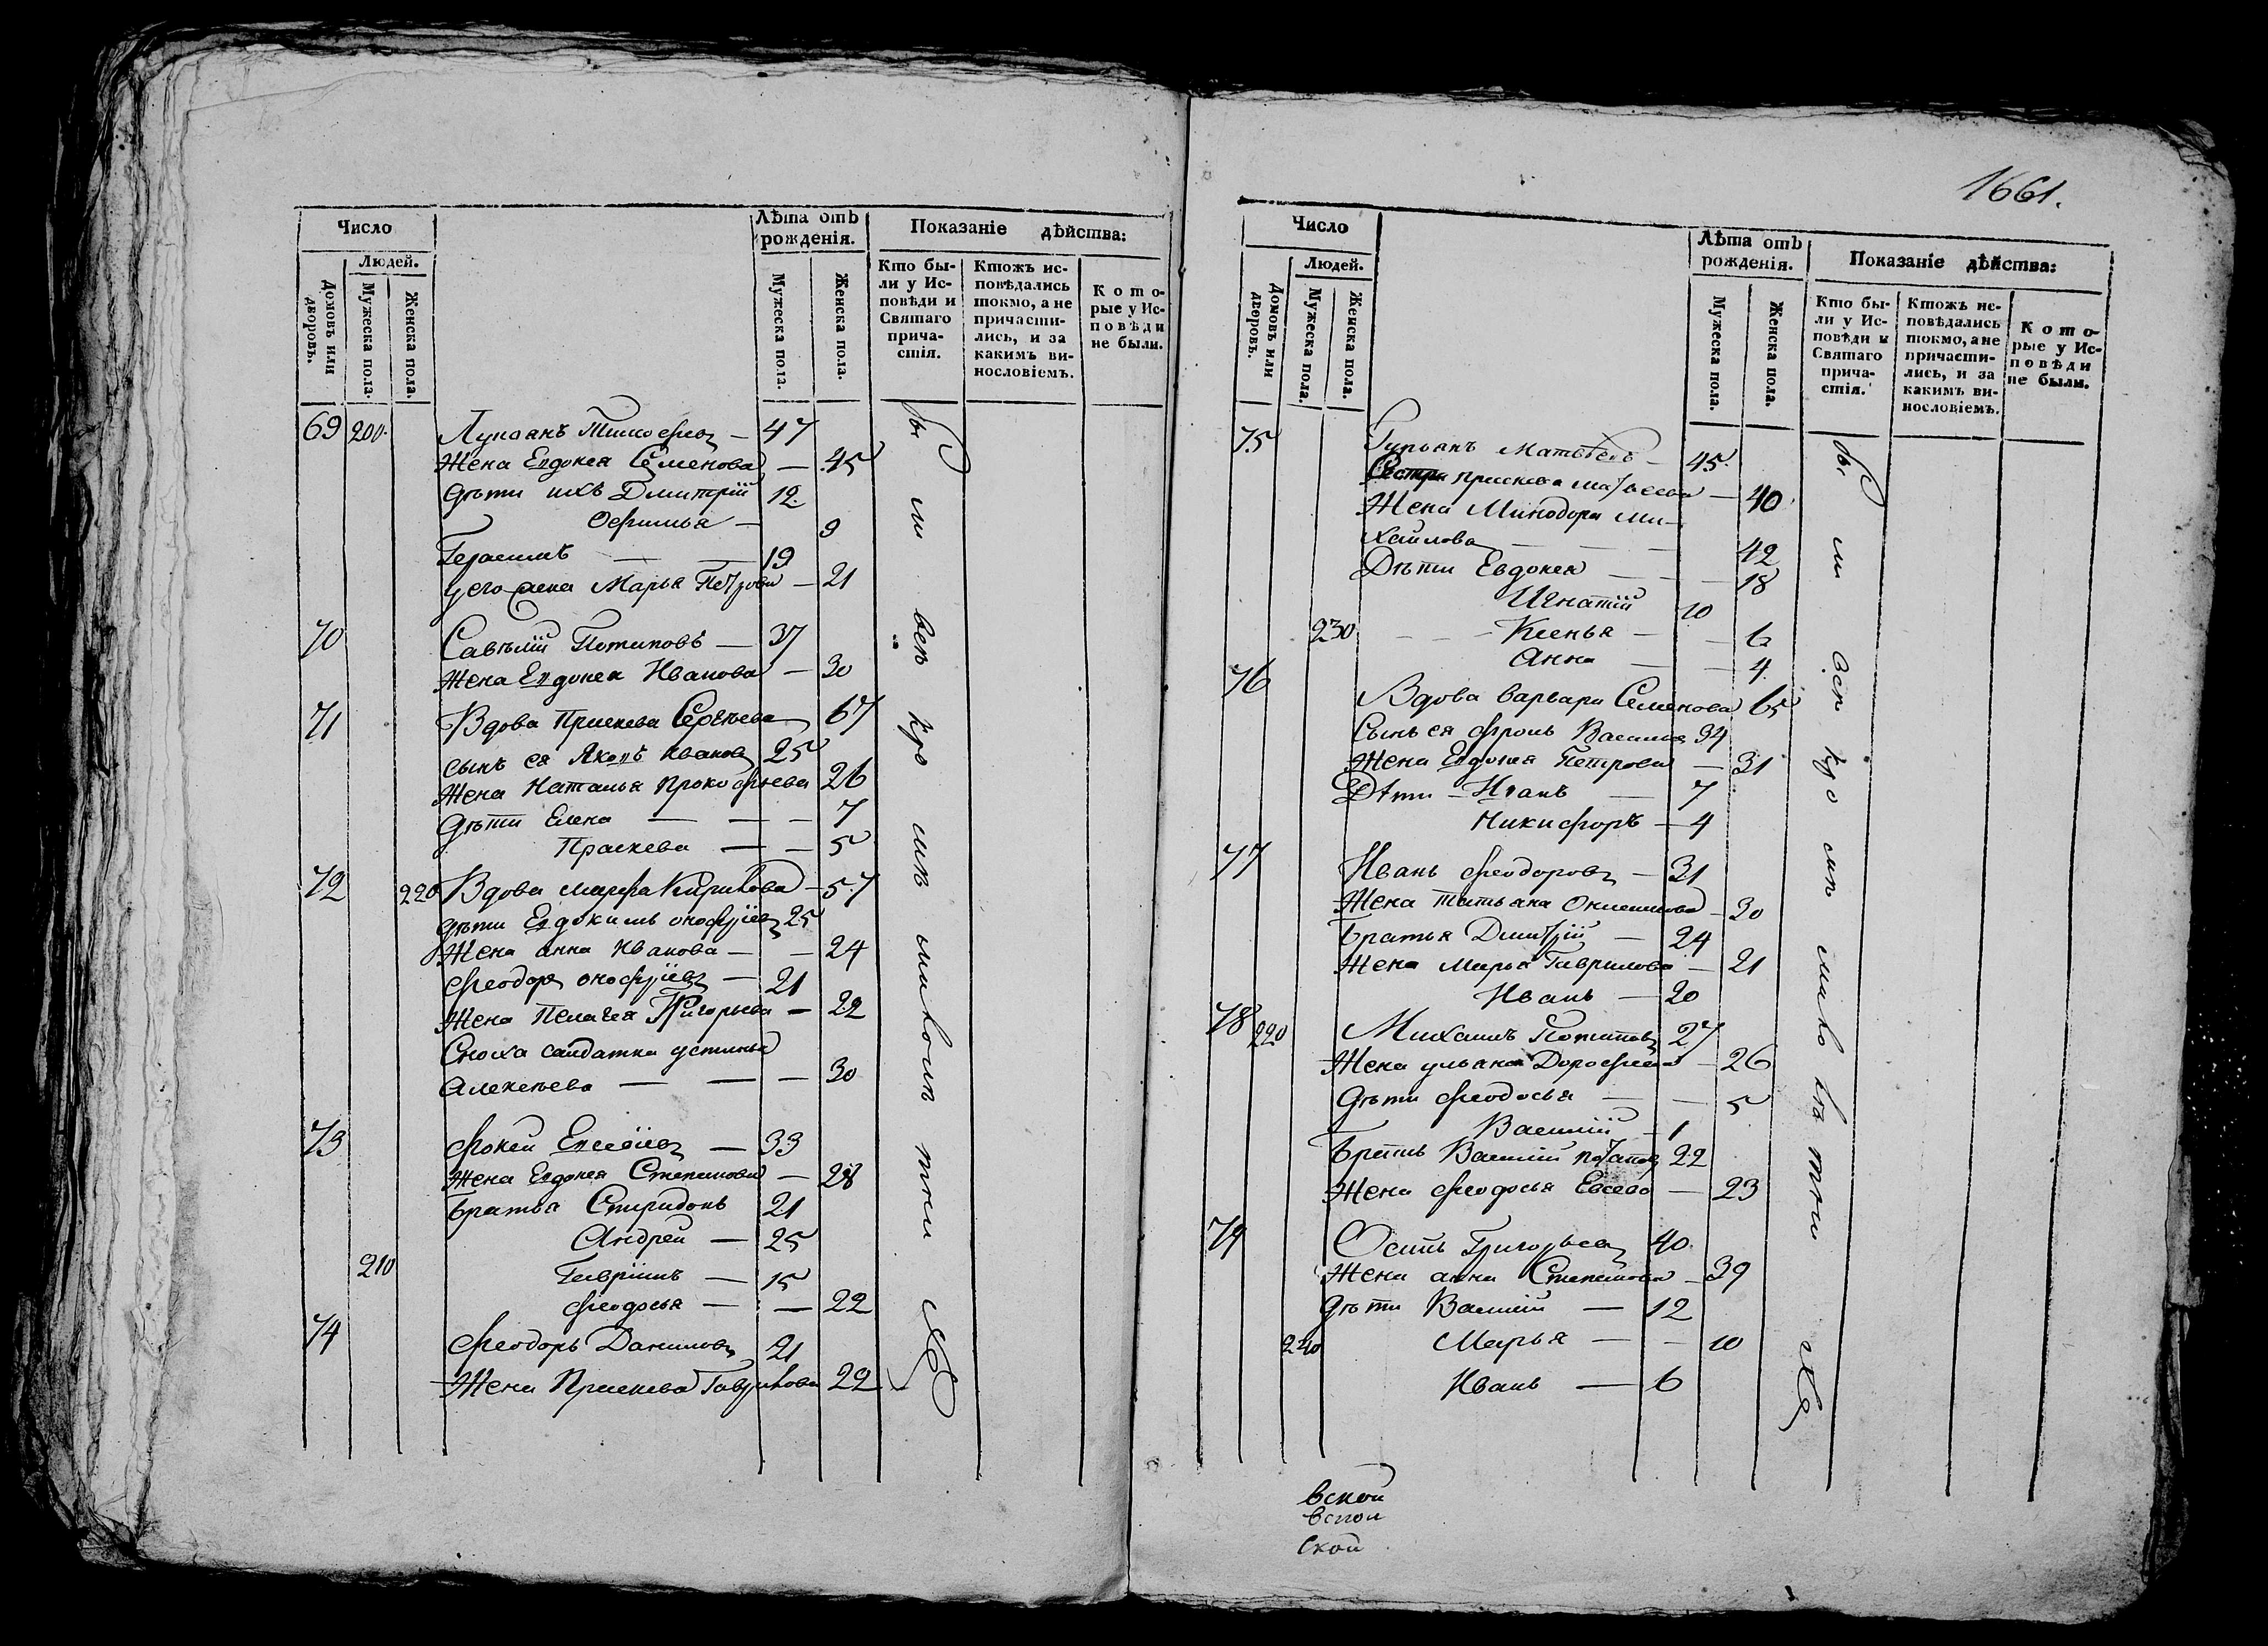 Число
Лѣта отъ рожденія.
Показаніе дѣйства:
Людей.
Домовъ или дворовъ.
Мужеска пола.
Женска пола.
Мужеска пола.
Женска пола.
Кто бы-
ли у Ис-
повѣди и
Святаго
прича-
стія.
Ктожъ ис-
повѣдались
токмо, а не
причасти-
лись, и за
какимъ ви-
нословіемъ.
Кото-
рые у Ис-
повѣди
не были.
69 200 Лукоанъ Тимофеев — 47
Жена Евдокея Семенова — 45
Дѣти ихъ Дмитрій 12
Офимья — 9
Герасимъ — — 19
у его жена Марья Петрова — 21
70 Савелій Потаповъ — 37
Жена Евдокея Иванова — 30
71 Вдова Праскева Сергѣева 67
сынъ ея Яковъ Иванов 25
Жена Наталья Прокофьева 26
Дѣти Елена — — — 7
Праскева — — 5
72 220 Вдова Марфа Кирилова — 57
дѣти Евдокимъ Онофріев 25
Жена Анна Иванова — — 24
Феодор Онофріев — 21
Жена Пелагея Григорьева — 22
Сноха салдатка устинья
Алексѣева — — — 30
73 Фокей Евсевіев — 33
Жена Евдокея Степанова — 28
Братья Спиридонъ 21
Андрей — 25
210 Гаврiилъ — 15
Феодосья — — 22
74 Феодоръ Данилов 21
Жена Праскева Гаврилова 22
1661.
Число
Лѣта отъ рожденія.
Показаніе дѣйства:
Людей.
Домовъ или дворовъ.
Мужеска пола.
Женска пола.
Мужеска пола.
Женска пола.
Кто бы-
ли у Ис-
повѣди и
Святаго
прича-
стія.
Ктожъ ис-
повѣдались
токмо, а не
причасти-
лись, и за
какимъ ви-
нословіемъ.
Кото-
рые у Ис-
повѣди
не были.
75 Гурьянъ Матвѣевъ — 45
Сестра Праскева Матвеева — 40
Жена Минодора Ми-
хайлова — — — 42
Дѣти Евдокея — — — 18
Игнатій 10
230 — — — Ксенья — — 6
Анна — — 4
76 Вдова Варвара Семенова 65
Сынъ ея Фролъ Васильев 34
Жена Евдокея Петрова — 31
Дѣти — Иванъ — 7
Никифоръ — 4
77 Иванъ Феодоров — 31
Жена Татьяна Онисимова — 30
Братья Дмитрій — 24
Жена Марья Гаврилова — 21
Иванъ — 20
78 220 Михаилъ Потапов 27
Жена ульяна Дорофеева — 26
Дѣти Феодосья — — 5
Василій — 1
Братъ Василій Потапов 22
Жена Феодосья Евсева — 23
79 Осипъ Григорьев 40
Жена анна Степанова — 39
Дѣти Василій — 12
240 Марья — — 10
Иванъ — 6
вской
вской
ской